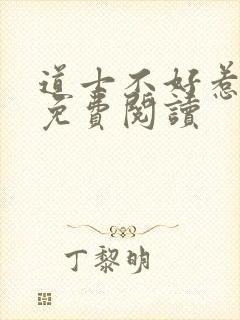 道士不好惹
免費閱讀
丁黎明